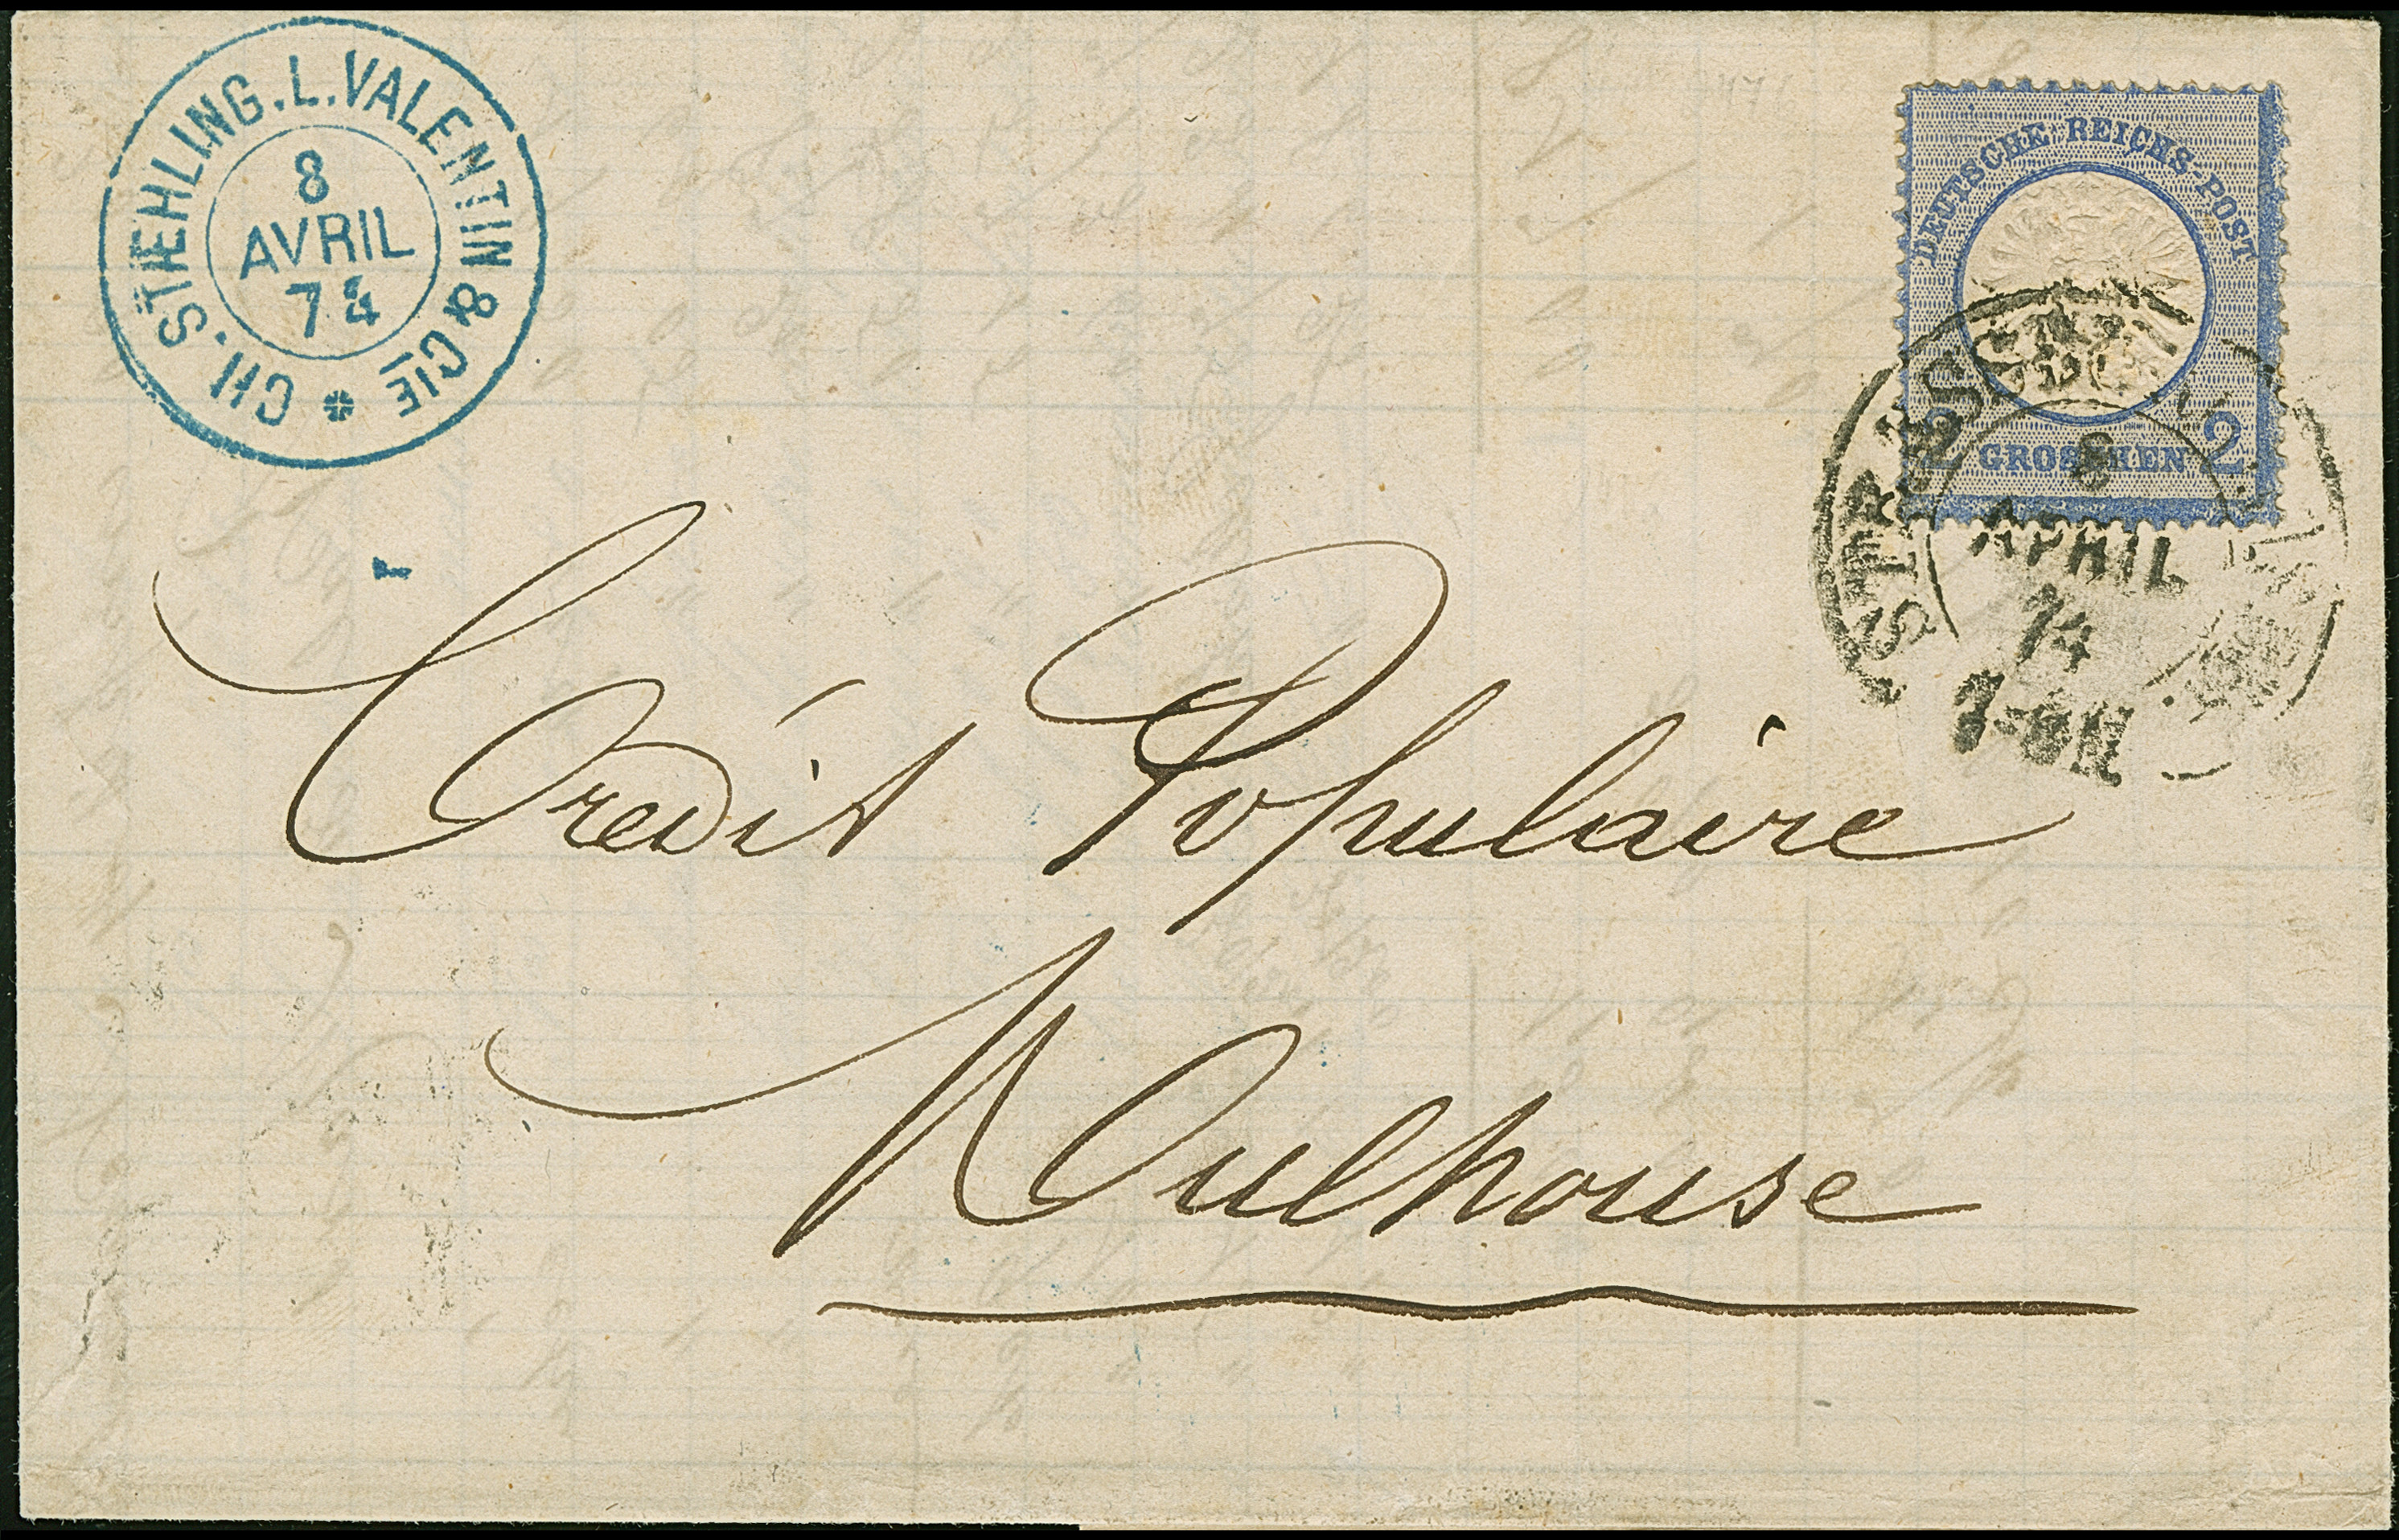 CH. STÆHLING. L. VALENTIN & CIE
8
AVRIL
74
DEUTSCHE REICHS-POST
2 GROSCHEN 2
8
APRIL
74
Crédit Populaire
Mulhouse